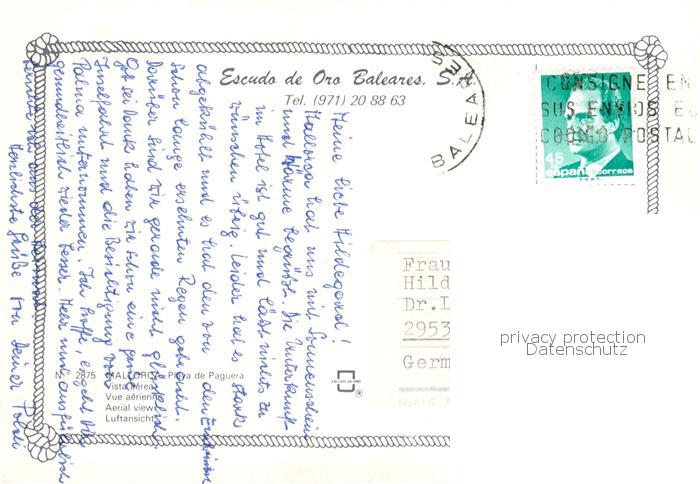 Escudo de Oro Baleares, S.A.
Tel. (971) 20 88 63
BALEARES
CONSIGNE EN
SUS ENVIOS EL
CODIGO POSTAL
45
españa correos
Meine liebe Hildegard!
Mallorca hat uns mit Sonnenschein
und Wärme begrüßt. Die Unterkunft
im Hotel ist gut und lässt nichts zu
wünschen übrig. Leider hat es stark
abgekühlt und es hat den von den Einheimischen
schon lange ersehnten Regen gebracht.
Darüber sind wir gerade nicht glücklich.
Gott sei Dank haben wir schon eine ganze
Inselfahrt und die Besichtigung von
Palma unternommen. Ich hoffe, es geht Dir
gesundheitlich wieder besser. Mehr und ausführlich
Herzlichste Grüße von Deiner
Frau
Hild
Dr.L
2953
Germ
N.º 2875 MALLORCA - Playa de Paguera
Vista aérea
Vue aérienne
Aerial view
Luftansicht
ESCUDO DE ORO
privacy protection
Datenschutz